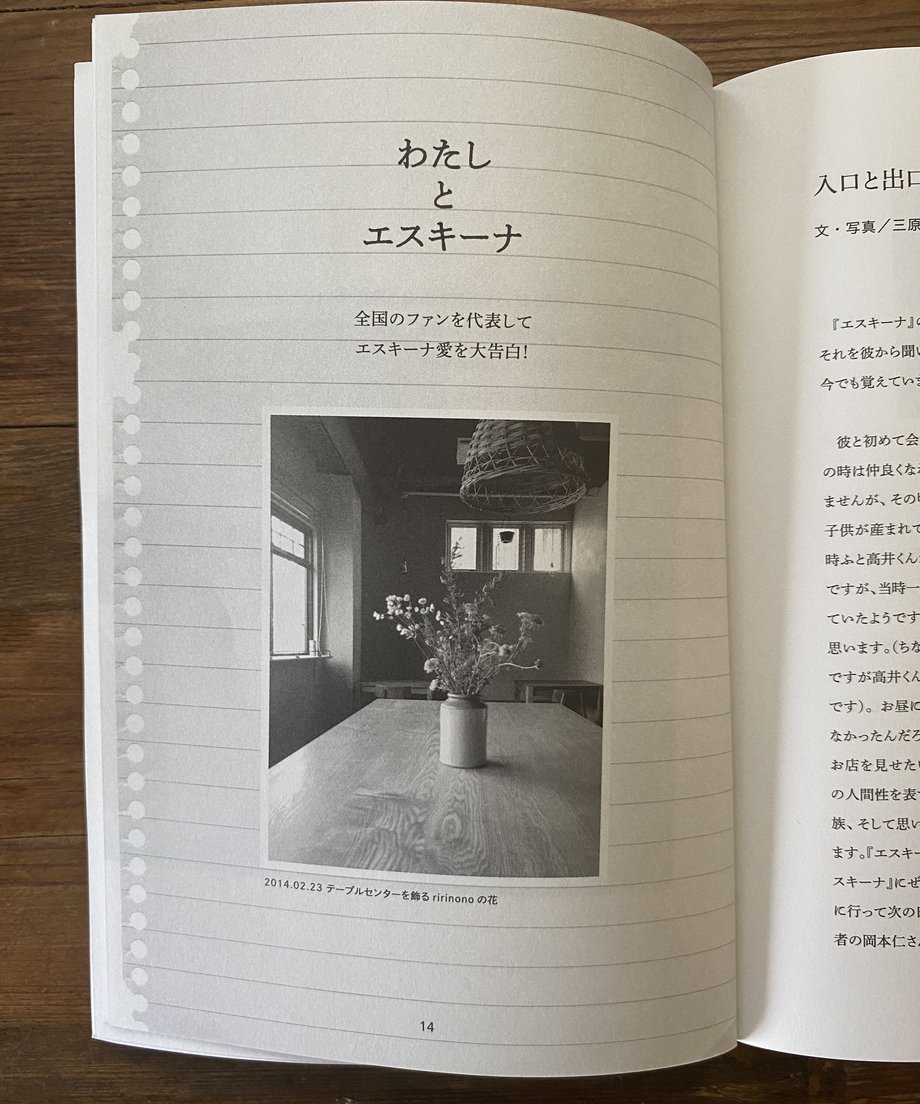 わたし
と
エスキーナ
全国のファンを代表して
エスキーナ愛を大告白!
2014.02.23 テーブルセンターを飾る ririnono の花
14
入口と出口
文・写真／三原
『エスキーナ』の
それを彼から聞い
今でも覚えていま
彼と初めて会
の時は仲良くなれ
ませんが、その
子供が産まれて
時ふと高井くん
ですが、当時一
ていたようです
思います。(ちな
ですが高井くん
です)。お昼に
なかったんだろ
お店を見せたい
の人間性を表
族、そして思い
ます。『エスキー
スキーナ』にぜ
に行って次の日
者の岡本仁さん